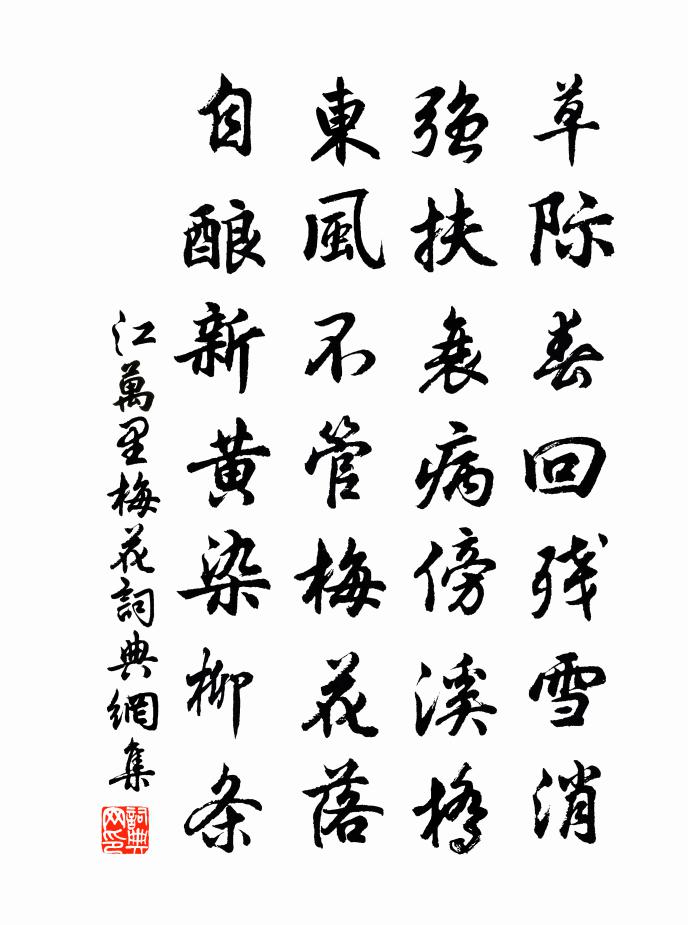 草际春回残雪消
強扶衰病傍溪橋
東風不管梅花落
自酿新黄染柳条
江萬里梅花詞典網集
詞典网印